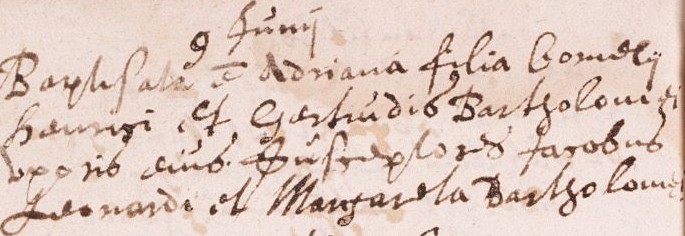 9 Junij
Baptisata ē Adriana filia Cornelij
Henrici et Gertrudis Bartholomei
uxoris eius. Susceptores Jacobus
Leonardi et Margareta Bartholomei